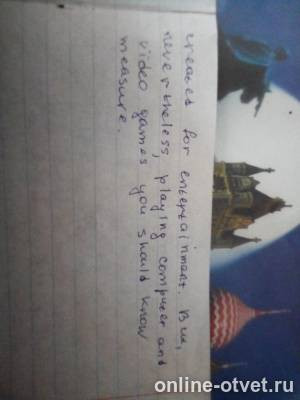 created for entertainment. But,
nevertheless, playing computer and
video games you should know
measure.
online-otvet.ru